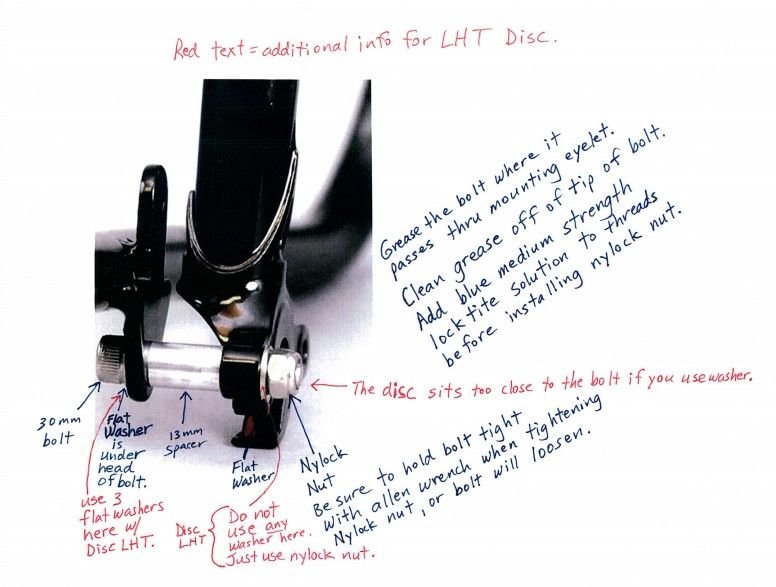 Red text = additional info for LHT Disc.
Grease the bolt where it
passes thru mounting eyelet.
Clean grease off of tip of bolt.
Add blue medium strength
locktite solution to threads
before installing nylock nut.
The disc sits too close to the bolt if you use washer.
30mm
bolt
Flat
Washer
is
under
head
of bolt.
13mm
Spacer
Flat
Washer
Nylock
Nut
Be sure to hold bolt tight
with allen wrench when tightening
Nylock nut, or bolt will loosen.
use 3
flat washers
here w/
Disc LHT.
Disc
LHT
Do not
use any
washer here.
Just use nylock nut.